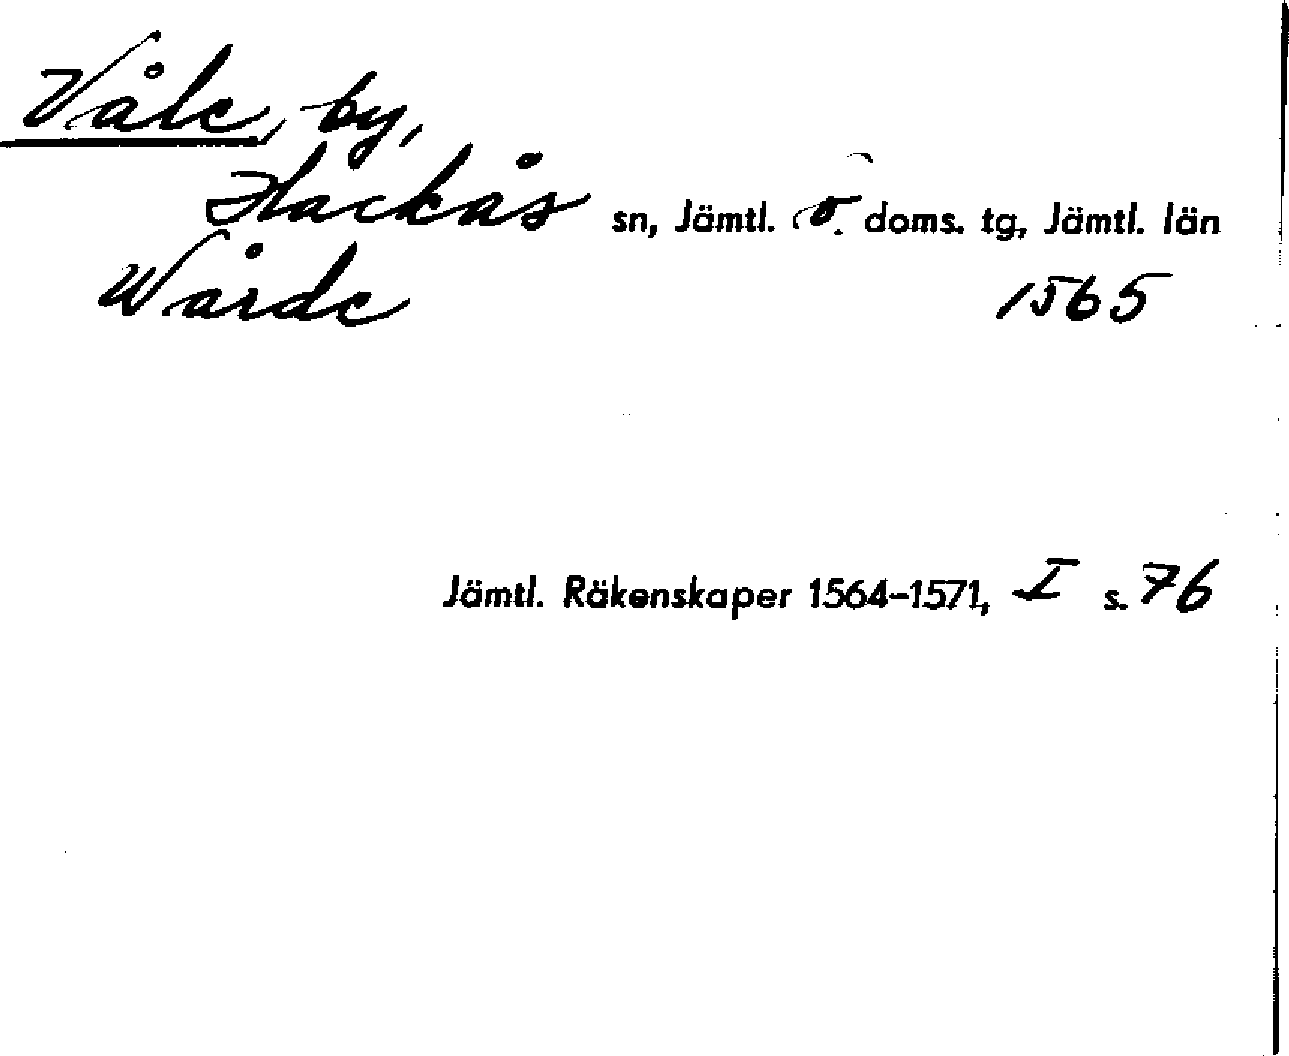 Våle, by,
Hackås sn, Jämtl. ö. doms. tg, Jämtl. län
Wårde 1565
Jämtl. Räkenskaper 1564-1571, I s. 76